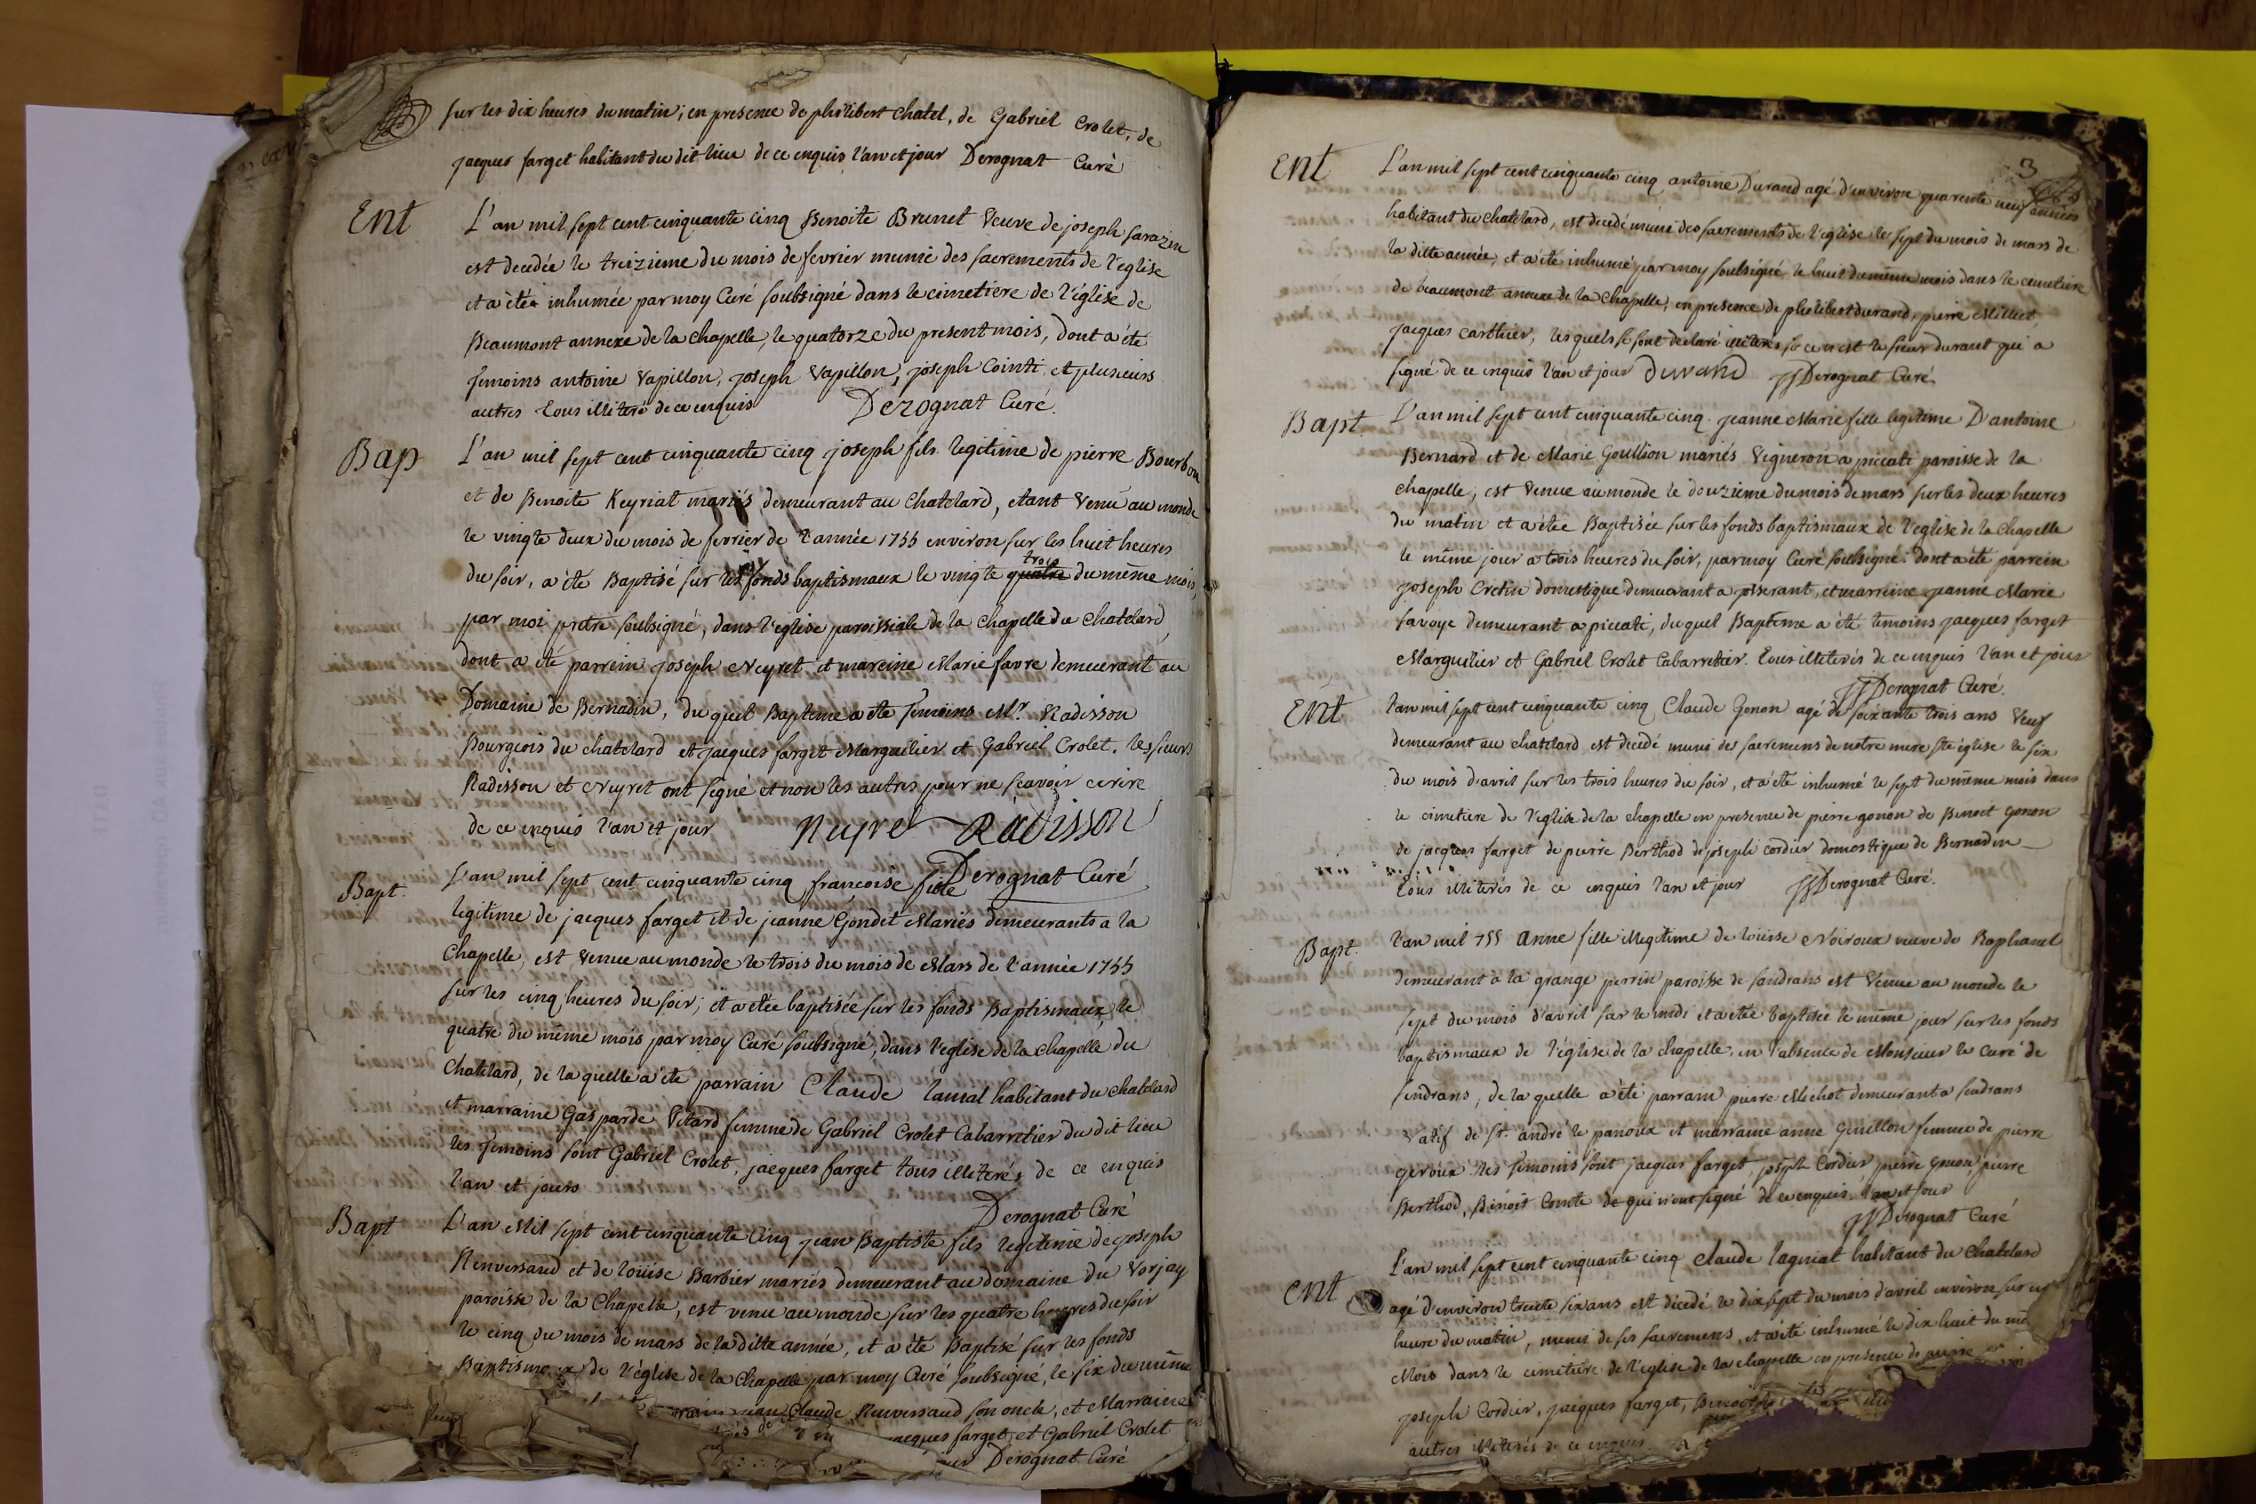 sur les dix heures du matin; en presence de philibert chatel, de Gabriel Crolet, de
jacques farget habitant du dit lieu de ce enquis l'an et jour Derognat Curé
Ent
L'an mil sept cent cinquante cinq Benoite Brunet Veuve de joseph sarazin
est decedée le treizieme du mois de fevrier munie des sacrements de l'eglise
et a été inhumée par moy Curé soubsigné dans le cimetiere de l'église de
Beaumont annexe de la chapelle, le quatorze du present mois, dont a été
temoins antoine Vapillon, joseph Vapillon, joseph Cointi et plusieurs
autres tous illiteré de ce enquis Derognat Curé.
Bap
L'an mil sept cent cinquante cinq joseph fils legitime de pierre Bourbon
et de Benoite Keyriat mariés demeurant au chatelard, etant Venu au monde
le vingte deux du mois de fevrier de l'année 1755 environ sur les huit heures
du soir, a été Baptisé sur les fonds baptismaux le vingte quatre trois du même mois
par moi pretre soubsigné, dans l'eglise paroissiale de la Chapelle du Chatelard,
dont a été parrein joseph Neyret et mareine Marie favre demeurant au
Domaine de Bernadin, du quel Bapteme a été temoins Mr. Radisson
Bourgeois du chatelard et jacques farget Marguilier et Gabriel Crolet. les sieurs
Radisson et Neyret ont signé et non les autres pour ne scavoir ecrire
de ce enquis l'an et jour Neyret Radisson
Derognat Curé
Bapt.
L'an mil sept cent cinquante cinq francoise fille
legitime de jacques farget et de jeanne Gondet Mariés demeurants a la
Chapelle, est Venue au monde le trois du mois de Mars de l'année 1755
sur les cinq heures du soir; et a etée baptisée sur les fonds Baptismaux, le
quatre du même mois par moy Curé soubsigné, dans l'eglise de la Chapelle du
Chatelard, de la quelle a été parrain Claude lanial habitant du chatelard
et marraine Gasparde Vitard femme de Gabriel Crolet Cabarretier du dit lieu
les temoins sont Gabriel Crolet, jacques farget tous illiterés de ce enquis
l'an et jours
Derognat Curé
Bapt
L'an Mil sept cent cinquante Cinq jean Baptiste fils legitime de joseph
Renversaud et de loüise Barbier mariés demeurant au domaine du Vorjay
paroisse de la Chapelle, est venu au monde sur les quatre heures du soir
le cinq du mois de mars de la ditte année, et a été Baptisé sur les fonds
de l'église de la Chapelle par moy Curé soubsigné, le six du même
jean Claude Renversaud son oncle, et Marraine
jacques farget, et Gabriel Crolet
Derognat Curé
3
Ent
L'an mil sept cent cinquante cinq antoine Durand agé d'environ quarente neuf années
habitant du Chatelard, est decedé muni des sacrements de l'eglise le sept du mois de mars de
la ditte année, et a été inhumé par moy soubsigné le huit du même mois dans le cimetiere
de beaumont annexe de la Chapelle, en presence de philibert durand, pierre Milliet,
jacques carthier, lesquels se sont declaré illiterés si ce n'est le sieur durant qui a
signé de ce enquis l'an et jour Durand JJ Derognat Curé
Bapt.
L'an mil sept cent cinquante cinq jeanne Marie fille legitime D'antoine
Bernard et de Marie Goullion mariés Vigneron a piccati paroisse de la
chapelle, est Venue au monde le douzieme du mois de mars sur les deux heures
du matin et a étée Baptisée sur les fonds baptismaux de l'eglise de la Chapelle
le même jour a trois heures du soir, par moy Curé soubsigné. Dont a été parrein
joseph Cretin domestique demeurant a josserant, et marreine jeanne Marie
savoye demeurant a piccati, du quel Bapteme a été temoins jacques farget
Marguilier et Gabriel Crolet Cabarretier. tous illiterés de ce enquis l'an et jour
JJ Derognat Curé.
Ent
l'an mil sept cent cinquante cinq Claude Gonon agé de soixante trois ans Veuf
demeurant au chatelard est decedé muni des sacremens de notre mere ste église le six
du mois d'avril sur les trois heures du soir, et a été inhumé le sept du même mois dans
le cimetiere de l'eglise de la chapelle en presence de pierre gonon de Benoit gonon
de jacques farget de pierre Berthod de joseph cordier domestique de Bernadin
tous illiterés de ce enquis l'an et jour JJ Derognat Curé.
Bapt.
l'an mil 755 anne fille illegitime de loüise Noiroux veuve de Raphanel
demeurant à la grange perrin paroisse de sandrans est Venue au monde le
sept du mois d'avril sur le midi et a étée baptisée le même jour sur les fonds
baptismaux de l'église de la chapelle, en l'absence de Monsieur le Curé de
sandrans, de la quelle a été parrain pierre Michot demeurant a sandrans
natif de st. andré le panoux et marraine anne Guillon femme de pierre
geroux les temoins sont jacques farget, joseph Cordier pierre gonon, pierre
Berthod, Benoit Comte de qui n'ont signé de ce enquis l'an et jour
JJ Derognat Curé
Ent
L'an mil sept cent cinquante cinq claude lagniat habitant du Chatelard
agé d'environ trente six ans est décedé le dix sept du mois d'avril environ sur
heure du matin, muni de ses sacremens, et a été inhumé le dix huit du
Mois dans le cimetiere de l'eglise de la chapelle en presence de pierre
joseph Cordier, jacques farget, Benoit
autres illiterés de ce enquis